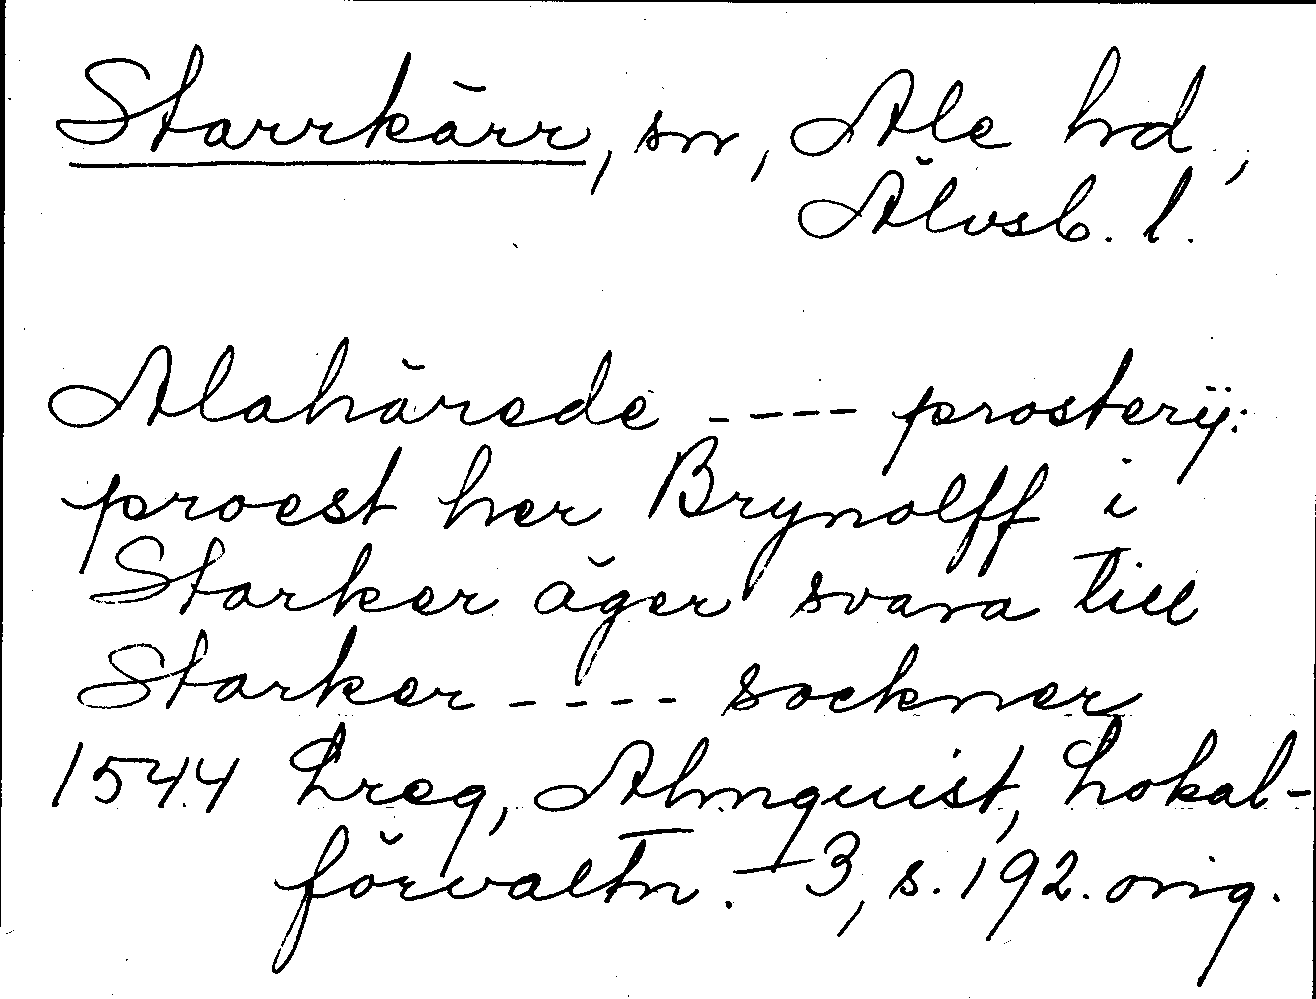 Starrkärr, sn, Ale hd.,
Älvsb. l.
Alahärede ---- prosterÿ:
proest her Brynolff i
Starker äger svara till
Starker ---- sockner
1544 Lreg, Almquist, Lokal-
förvaltn. 3, s. 192. orig.